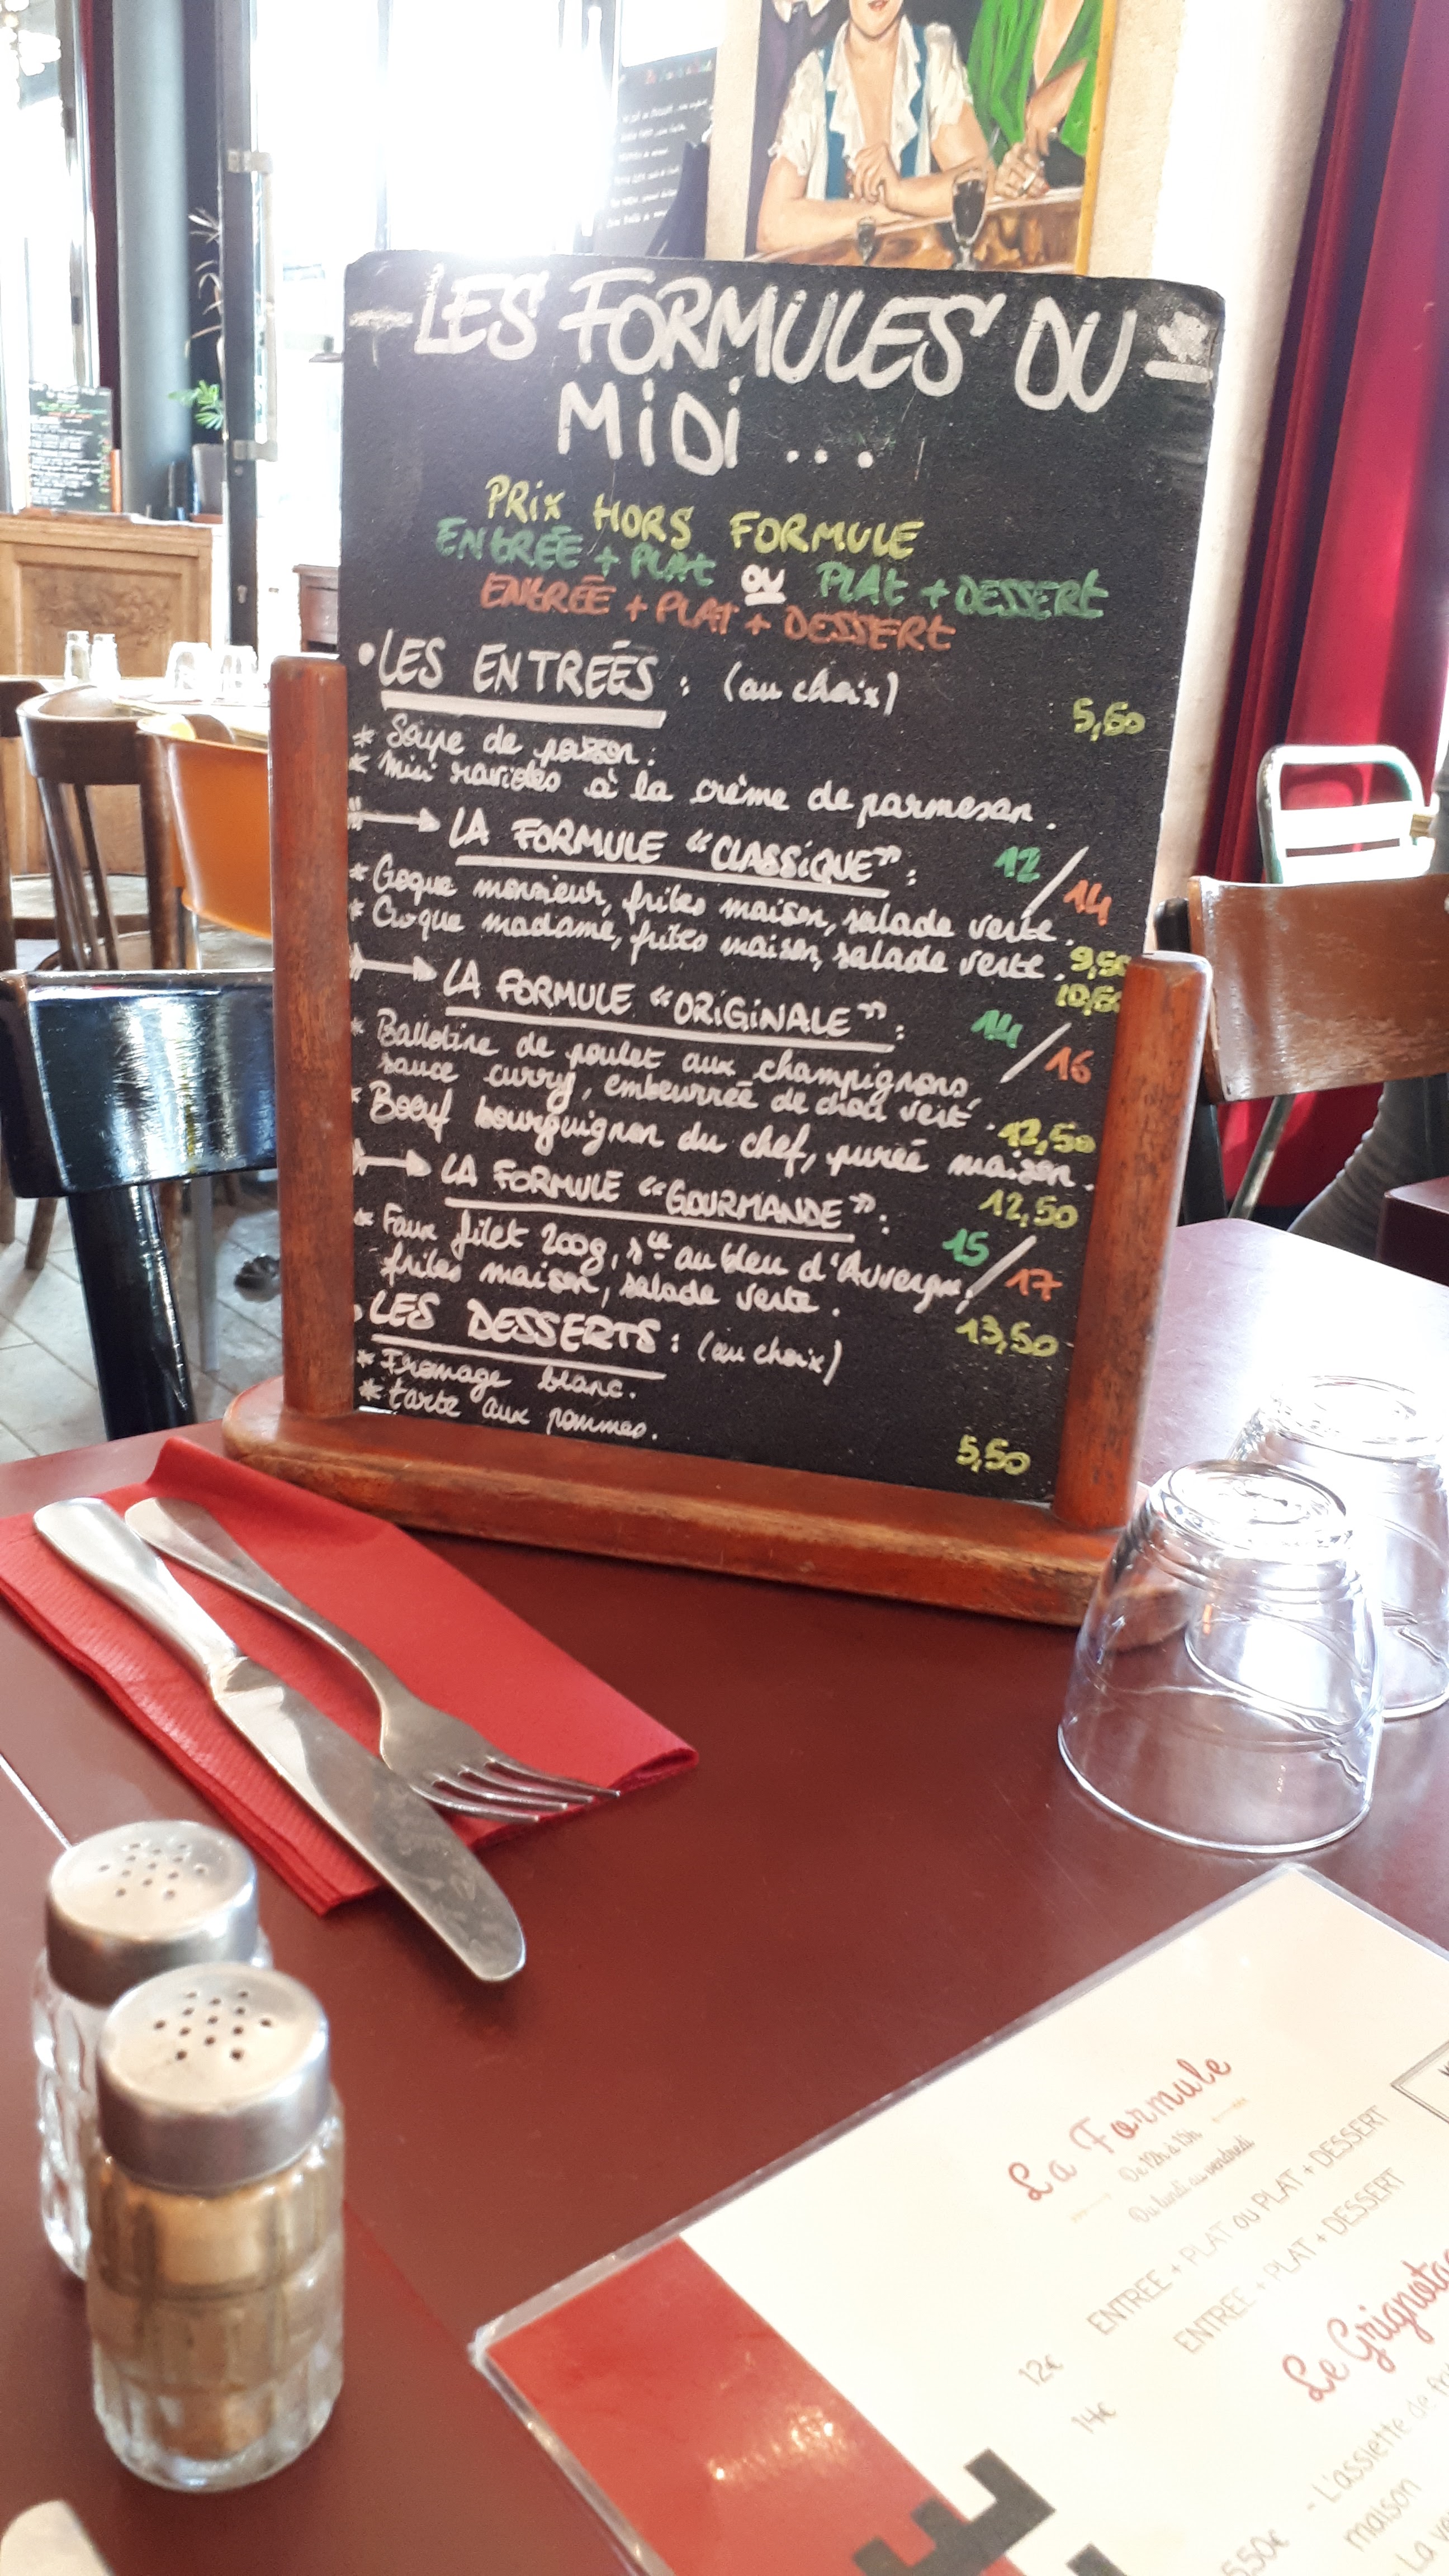 LES FORMULES DU
MiDi ...
PRix HORS FORMULE
ENTRÉE + PLAT OU PLAT + DESSERT
ENTRÉE + PLAT + DESSERT
• LES ENTREÉS : (au choix)
5,50
* Soupe de poisson.
* Mini ravioles à la crème de parmesan.
LA FORMULE "CLASSiQUE" : 12/14
* Croque monsieur, frites maison, salade verte. 9,50
* Croque madame, frites maison, salade verte. 10,50
LA FORMULE "ORiGiNALE" : 14/16
* Ballotine de poulet aux champignons,
sauce curry, embeurrée de chou vert. 12,50
* Boeuf bourguignon du chef, purée maison. 12,50
LA FORMULE "GOURMANDE" : 15/17
* Faux filet 200g, sce au bleu d'Auvergne,
frites maison, salade verte. 13,50
• LES DESSERTS : (au choix)
* Fromage blanc.
* tarte aux pommes.
5,50
La Formule
De 12h à 15h
Du lundi au vendredi
ENTREE + PLAT OU PLAT + DESSERT
12€
ENTREE + PLAT + DESSERT
14€
Le Grignota
- L'assiette de
maison
5,50€
- La